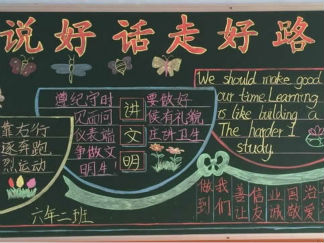 说好话走好路
靠右行
逐奔跑
烈运动
遵纪守时
见面问
仪表端
争做文
明生
讲文明
要做好
候有礼貌
正讲卫生
We should make good
our time.Learning
is like building a
The harder I
study.
做到
我们
善信业国治
让友诚敬爱
六年二班